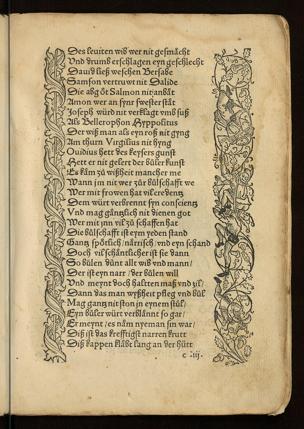 Des leuiten wib wer nit geschmächt
Vnd drumb erschlagen eyn geschlecht
Dauid ließ weschen Bersabe
Samson vertruwt nit Dalide
Die abgöt Salmon nit anbät
Amon wer an synr swester stät
Joseph würd nit verklagt vmb suß
Als Bellerophon Hyppolitus
Der wiß man als eyn roß nit gyng
Am thurn Virgilius nit hyng
Ouidius hett des keysers gunst
Hett er nit gelert der büler kunst
Es käm zů wißheit mancher me
Wann jm nit wer zůr bůlschafft we
Wer mit frowen hat vil credentz
Dem würt verbrennt syn conscientz
Vnd mag gäntzlich nit dienen got
Wer mit jnn vil zů schaffen hat
Die bůlschafft ist eym yeden stand
Gantz spötlich / närrisch / vnd eyn schand
Doch vil schäntlicher ist sie dann
So bůlen důnt allt wib vnd mann /
Der ist eyn narr / der bůlen will
Vnd meynt doch haltten maß vnd zil /
Dann das man wyßheit pfleg vnd bůl
Mag gantz nit ston in eynem stůl
Eyn bůler würt verblännt so gar /
Er meynt / es näm nyeman sin war /
Diß ist das krefftigst narren krutt
Diß kappen kläbt lang an der hütt
c iij.